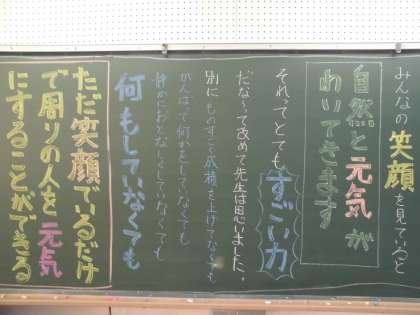 みんなの笑顔を見ていると
自然と元気が
わいてきます
それってとてもすごい力
だな〜って改めて先生は思いました。
別にものすごく成績を上げてなくても
がんばって何かをしていなくても
静かにおとなしくしていなくても
何もしていなくても
ただ笑顔でいるだけ
で周りの人を元気
にすることができる